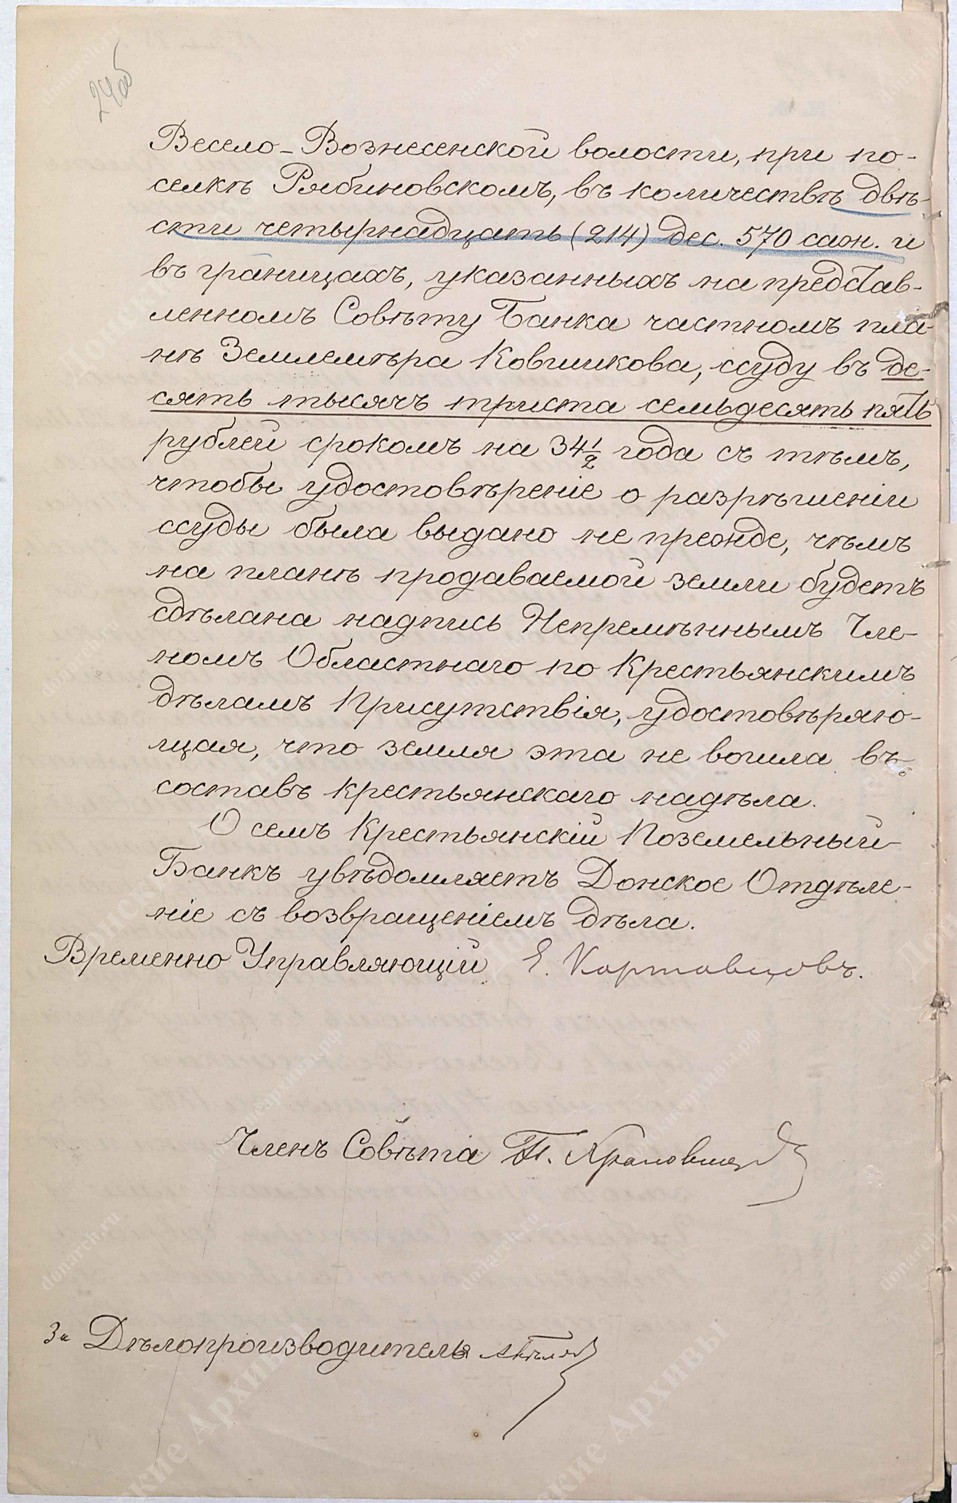 24об
Весело-Вознесенской волости, при по-
селкѣ Рябиновскомъ, въ количествѣ двѣ-
сти четырнадцать (214) дес. 570 саж. и
въ границахъ, указанныхъ на представ-
ленномъ Совѣту Банка частномъ пла-
нѣ Землемѣра Ковшикова, ссуду въ де-
сять тысячъ триста семьдесятъ пять
рублей срокомъ на 34 1/2 года съ тѣмъ,
чтобы удостовѣреніе о разрѣшеніи
ссуды было выдано не прежде, чѣмъ
на планѣ продаваемой земли будетъ
сдѣлана надпись Непремѣннымъ Чле-
номъ Областнаго по Крестьянскимъ
дѣламъ Присутствія, удостовѣряю-
щая, что земля эта не вошла въ
составъ крестьянскаго надѣла.
О семъ Крестьянскій Поземельный
Банкъ увѣдомляетъ Донское Отдѣле-
ніе съ возвращеніемъ дѣла.
Временно Управляющій Е. Картавцовъ.
Членъ Совѣта П.
За Дѣлопроизводителя